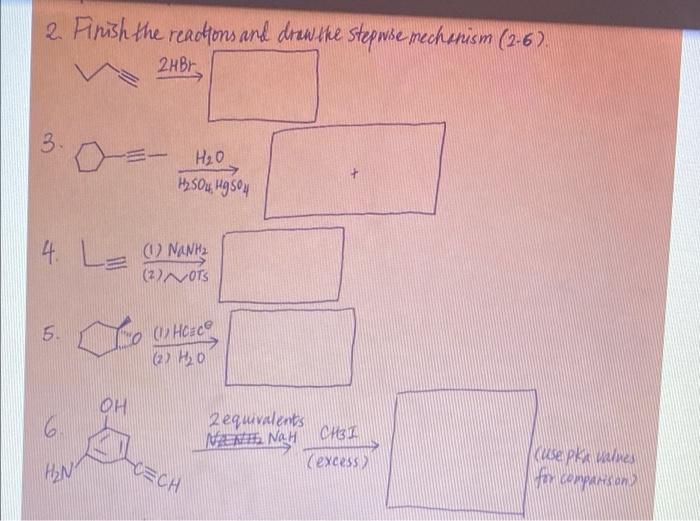 2. Finish the reactions and draw the stepwise mechanism (2-6).
2HBr
3.
H2O
H2SO4, HgSO4
+
4.
(1) NaNH2
(2) OTs
5.
O
(1) HC≡C⊖
(2) H2O
6.
OH
H2N
C≡CH
2 equivalents
NaNH2 NaH
CH3I
(excess)
(use pka values
for comparison)